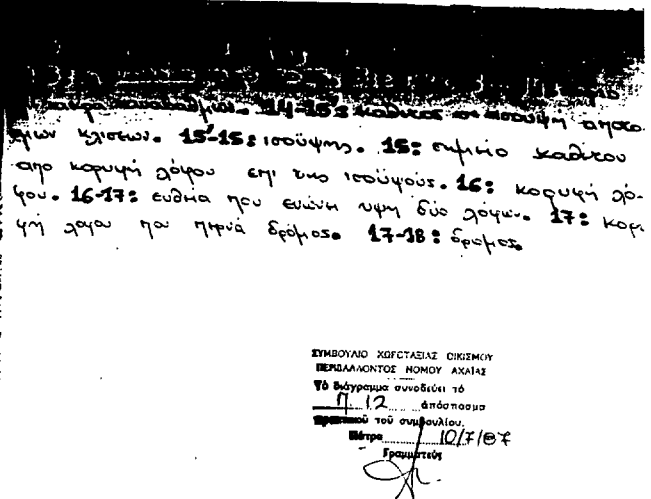 14-15: κάθετος σε ισουψή αποτό-
μων κλίσεων. 15'-15: ισοϋψής. 15: σημείο καθέτου
από κορυφή λόφου επί της ισοϋψούς. 16: κορυφή λό-
φου. 16-17: ευθεία που ενώνει υψη δύο λόφων. 17: κορυ-
φή λόφου που περνά δρόμος. 17-18: δρόμος.
ΣΥΜΒΟΥΛΙΟ ΧΩΡΟΤΑΞΙΑΣ ΟΙΚΙΣΜΟΥ
ΠΕΡΙΒΑΛΛΟΝΤΟΣ ΝΟΜΟΥ ΑΧΑΪΑΣ
Τό διάγραμμα συνοδεύει τό
Π. 12 ἀπόσπασμα
πρακτικοῦ τοῦ συμβουλίου.
Πάτρα 10/7/87
Γραμματεύς